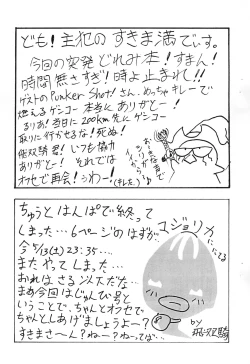 ども！主犯のすきま満でぃす。
今回の突発どれみ本！すまん！
時間無さすぎ！時よ止まれ！！
ゲストのPunker Shot！さん、めっちゃキレーで
燃えるゲンコー本当にありがとー！
るりあ！当日に200km先にゲンコー
取りに行かせるな！死ぬ！
ありがとー！それでは
オクセで再会！
ちゅうとはんぱで終って
しまった…6ページのはずが…
今5/13(土)23:35…
またやってしまった…
おれはさるジんスだな…
まあ今回はじゅんび号と
いうことで、ちゃんとオクセで
ちゃんとしあげましょうよー？
すきまさ〜ん？ねー？ねーってば…
マジョリカ
にってる
by